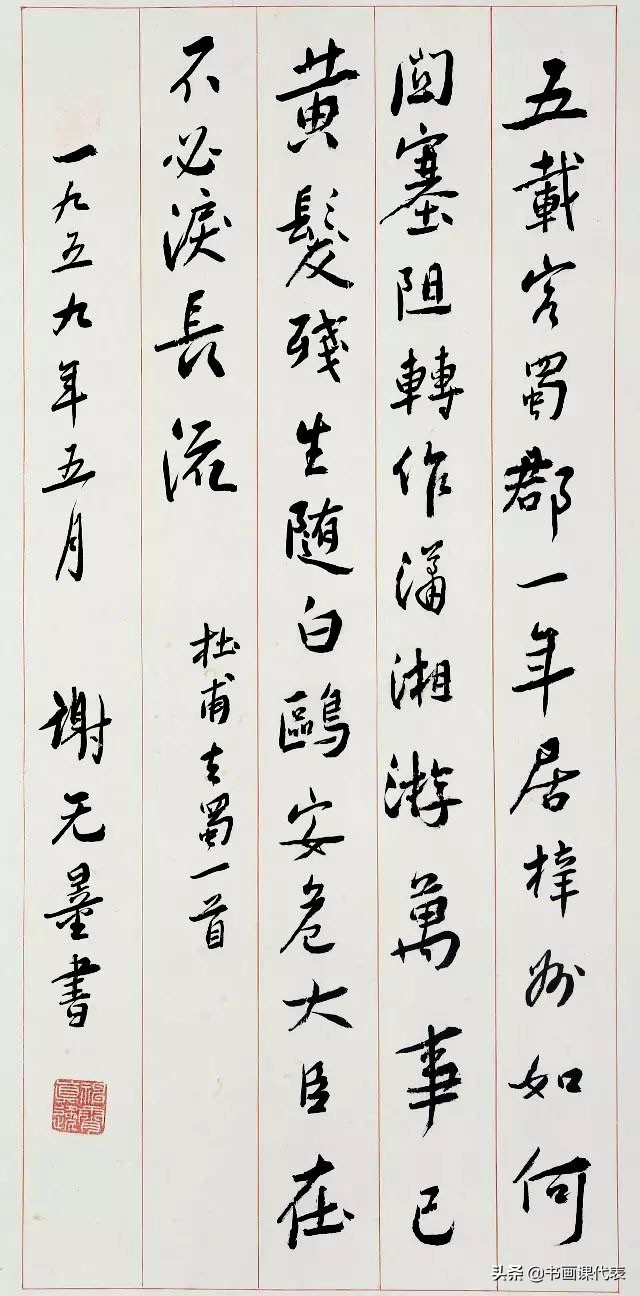 五載客蜀郡一年居梓州如何
関塞阻轉作瀟湘游萬事已
黄髮殘生随白鷗安危大臣在
不必淚長流
杜甫去蜀一首
一九五九年五月 谢无量書
头条 @书画课代表